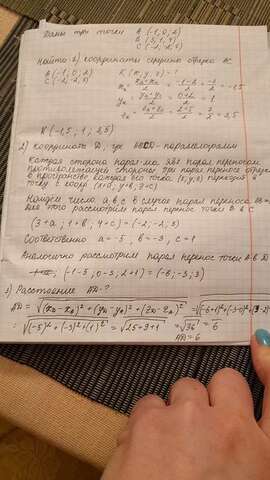 Даны три точки A (-1, 0, 2)
B (3, 1, 4)
C (-2, -2, 5)
Найти 1) координаты середины отрезка AC
A (-1, 0, 2) K (x; y; z) - ?
C (-2, -2, 5) = -1-2/2 = -3/2 = -1,5
= 0+2/2 = 1
= 2+5/2 = 7/2 = 3,5
K (-1,5 ; 1 ; 3,5)
2) координаты D, где - параллелограмм
Каждая сторона парал-ма явл парал переносом
противолежащей стороны. При парал переносе
в пространстве каждая точка (x, y, z) переходит в
точку с коор (x+a, y+b, z+c)
Найдем числа a b c в случае парал переноса
Для этого рассмотрим парал перенос точки B в C
(3+a ; 1+b ; 4+c) = (-2; -2; 5)
Соответственно a = -5, b = -3, c = 1
Аналогично рассмотрим парал перенос точки A в D
(-1-5; 0-3; 2+1) = (-6; -3; 3)
3) Расстояние AD - ?
AD = √(x_D - x_A)² + (y_D - y_A)² + (z_D - z_A)² = √(-6+1)² + (-3-0)² + (3-2)
= √(-5)² + (-3)² + (1)² = √25+9+1 = √36 = 6
AD = 6